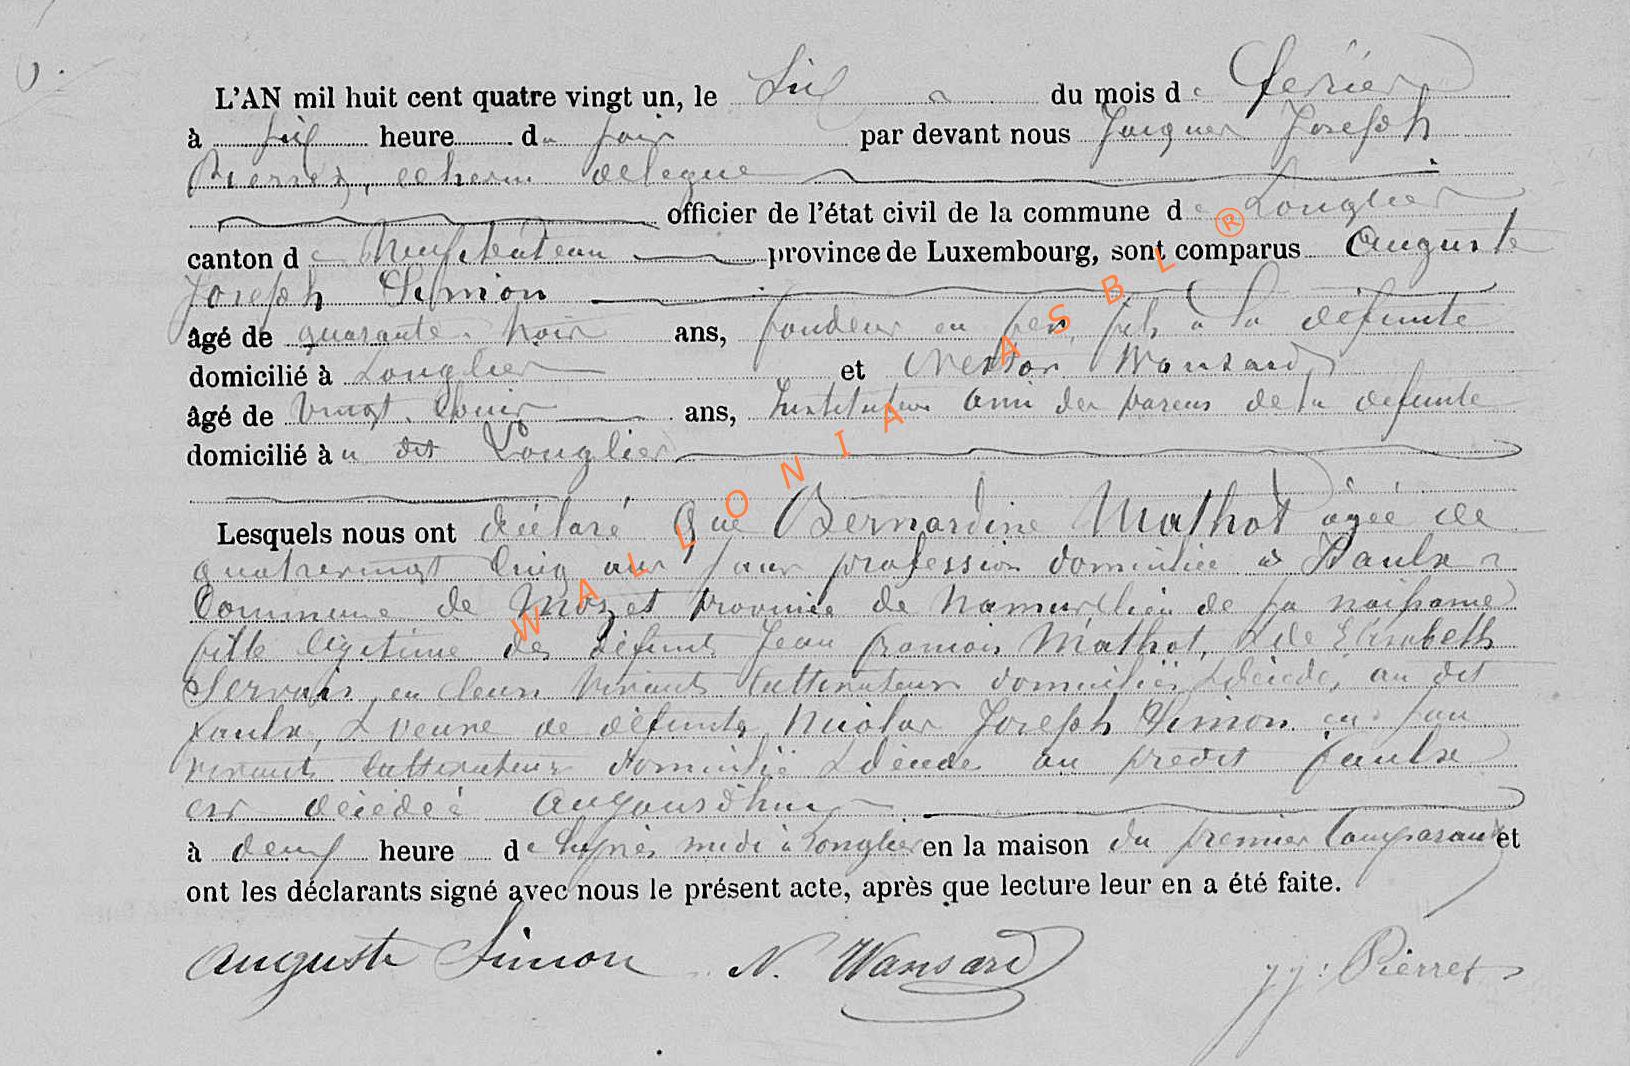 L'AN mil huit cent quatre vingt un, le Six du mois de Fevrier
à six heure du soir par devant nous Jacques Joseph
Pierret, echevin delegué
officier de l'état civil de la commune de Longlier
canton de Neufchateau province de Luxembourg, sont comparus Auguste
Joseph Simon
âgé de quarante trois ans, fondeur en fer, fils à la défunte
domicilié à Longlier et Nestor Wansard
âgé de vingt ans, Instituteur ami des parens de la défunte
domicilié au dit Longlier
Lesquels nous ont déclaré que Bernardine Mathot âgée de
quatrevingt cinq ans sans profession domiciliée à Faulx
Commune de Mozet province de Namur (lieu de sa naissance)
fille légitime des défunts Jean François Mathot, & de Elisabeth
Servais en leurs vivants cultivateurs domiciliés & décédés au dit
Faulx, & veuve de défunt Nicolas Joseph Simon en son
vivant cultivateur domicilié & décédé au predit Faulx
est décédée aujourd'hui
à deux heure de l'après midi à Longlier en la maison du premier Comparant et
ont les déclarants signé avec nous le présent acte, après que lecture leur en a été faite.
Auguste Simon N. Wansard JJ: Pierret
WALLONIA ASBL ®